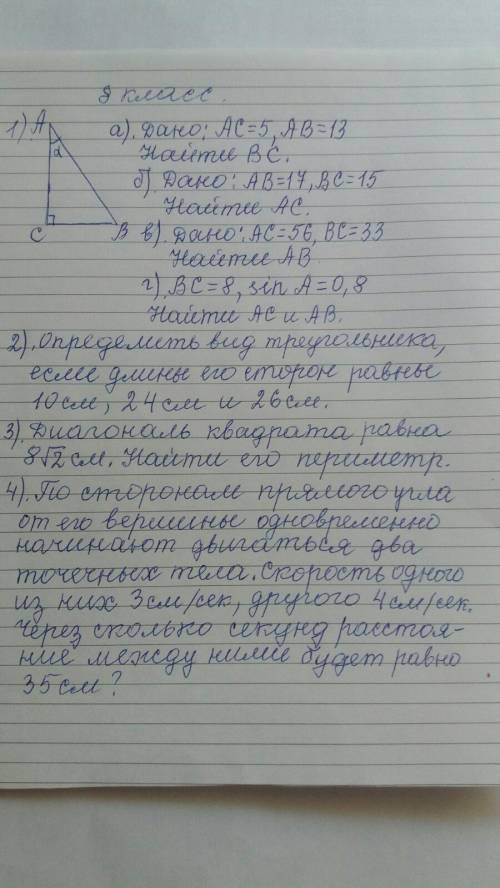 8 класс.
1) A а). Дано: AC=5, AB=13
α Найти BC.
б). Дано: AB=17, BC=15
Найти AC.
C B в). Дано: AC=56, BC=33
Найти AB
г). BC=8, sin A=0,8
Найти AC и AB.
2). Определить вид треугольника,
если длины его сторон равны
10см, 24см и 26см.
3). Диагональ квадрата равна
8√2см. Найти его периметр.
4). По сторонам прямого угла
от его вершины одновременно
начинают двигаться два
точечных тела. Скорость одного
из них 3см/сек, другого 4см/сек.
Через сколько секунд расстоя-
ние между ними будет равно
35см?